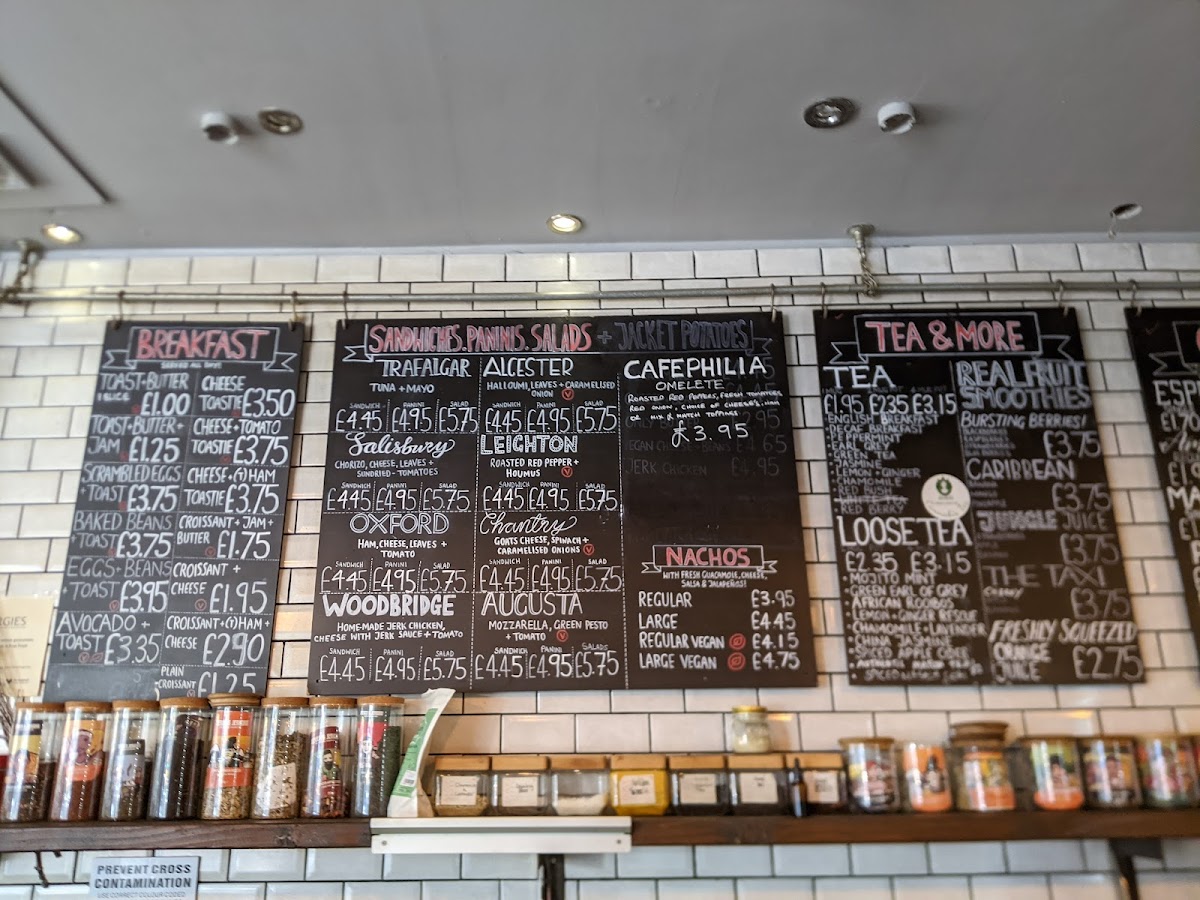 BREAKFAST
SERVED ALL DAY!
TOAST + BUTTER
1 SLICE £1.00
TOAST + BUTTER +
JAM £1.25
SCRAMBLED EGGS
+ TOAST £3.75
BAKED BEANS
+ TOAST £3.75
EGGS + BEANS
+ TOAST £3.95
AVOCADO +
TOAST £3.35
CHEESE
TOASTIE £3.50
CHEESE + TOMATO
TOASTIE £3.75
CHEESE + (T) HAM
TOASTIE £3.75
CROISSANT + JAM +
BUTTER £1.75
CROISSANT +
CHEESE £1.95
CROISSANT + (T) HAM +
CHEESE £2.90
PLAIN
CROISSANT £1.25
SANDWICHES, PANINIS, SALADS + JACKET POTATOES
TRAFALGAR
TUNA + MAYO
SANDWICH PANINI SALAD
£4.95 £4.95 £5.75
Salisbury
CHORIZO, CHEESE, LEAVES +
SUNDRIED - TOMATOES
SANDWICH PANINI SALAD
£4.45 £4.95 £5.75
OXFORD
HAM, CHEESE, LEAVES +
TOMATO
SANDWICH PANINI SALAD
£4.45 £4.95 £5.75
WOODBRIDGE
HOME-MADE JERK CHICKEN,
CHEESE WITH JERK SAUCE + TOMATO
SANDWICH PANINI SALAD
£4.45 £4.95 £5.75
ALCESTER
HALLOUMI, LEAVES + CARAMELISED
ONION V
SANDWICH PANINI SALAD
£4.45 £4.95 £5.75
LEIGHTON
ROASTED RED PEPPER +
HOUMUS V
SANDWICH PANINI SALAD
£4.45 £4.95 £5.75
Chantry
GOATS CHEESE, SPINACH +
CARAMELISED ONIONS V
SANDWICH PANINI SALAD
£4.45 £4.95 £5.75
AUGUSTA
MOZZARELLA, GREEN PESTO
+ TOMATO V
SANDWICH PANINI SALADS
£4.45 £4.95 £5.75
CAFEPHILIA
OMELETE
ROASTED RED PEPPERS, FRESH TOMATOES
RED ONION, CHOICE OF CHEESES, HAM
OR MIX & MATCH TOPPINGS
£3.95
VEGAN CHEESE + BEANS £4.65
JERK CHICKEN £4.95
NACHOS
WITH FRESH GUACAMOLE, CHEESE,
SALSA & JALAPEÑOS!
REGULAR £3.95
LARGE £4.45
REGULAR VEGAN £4.15
LARGE VEGAN £4.75
TEA & MORE
TEA
£1.95 £2.35 £3.15
ENGLISH BREAKFAST
DECAF BREAKFAST
PEPPERMINT
GREEN TEA
JASMINE
LEMON + GINGER
CHAMOMILE
RED BUSH
RED BERRY
LOOSE TEA
£2.35 £3.15
• MOJITO MINT
• GREEN EARL OF GREY
• AFRICAN ROOIBOS
• LEMON + GINGER RESCUE
• CHAMOMILE + LAVENDER
• CHINA JASMINE
• SPICED APPLE CORE
REAL FRUIT
SMOOTHIES
BURSTING BERRIES!
£3.75
CARIBBEAN
£3.75
JUNGLE JUICE
£3.75
THE TAXI
£3.75
FRESHLY SQUEEZED
ORANGE
JUICE £2.75
PREVENT CROSS
CONTAMINATION
USE CORRECT COLOUR CODED